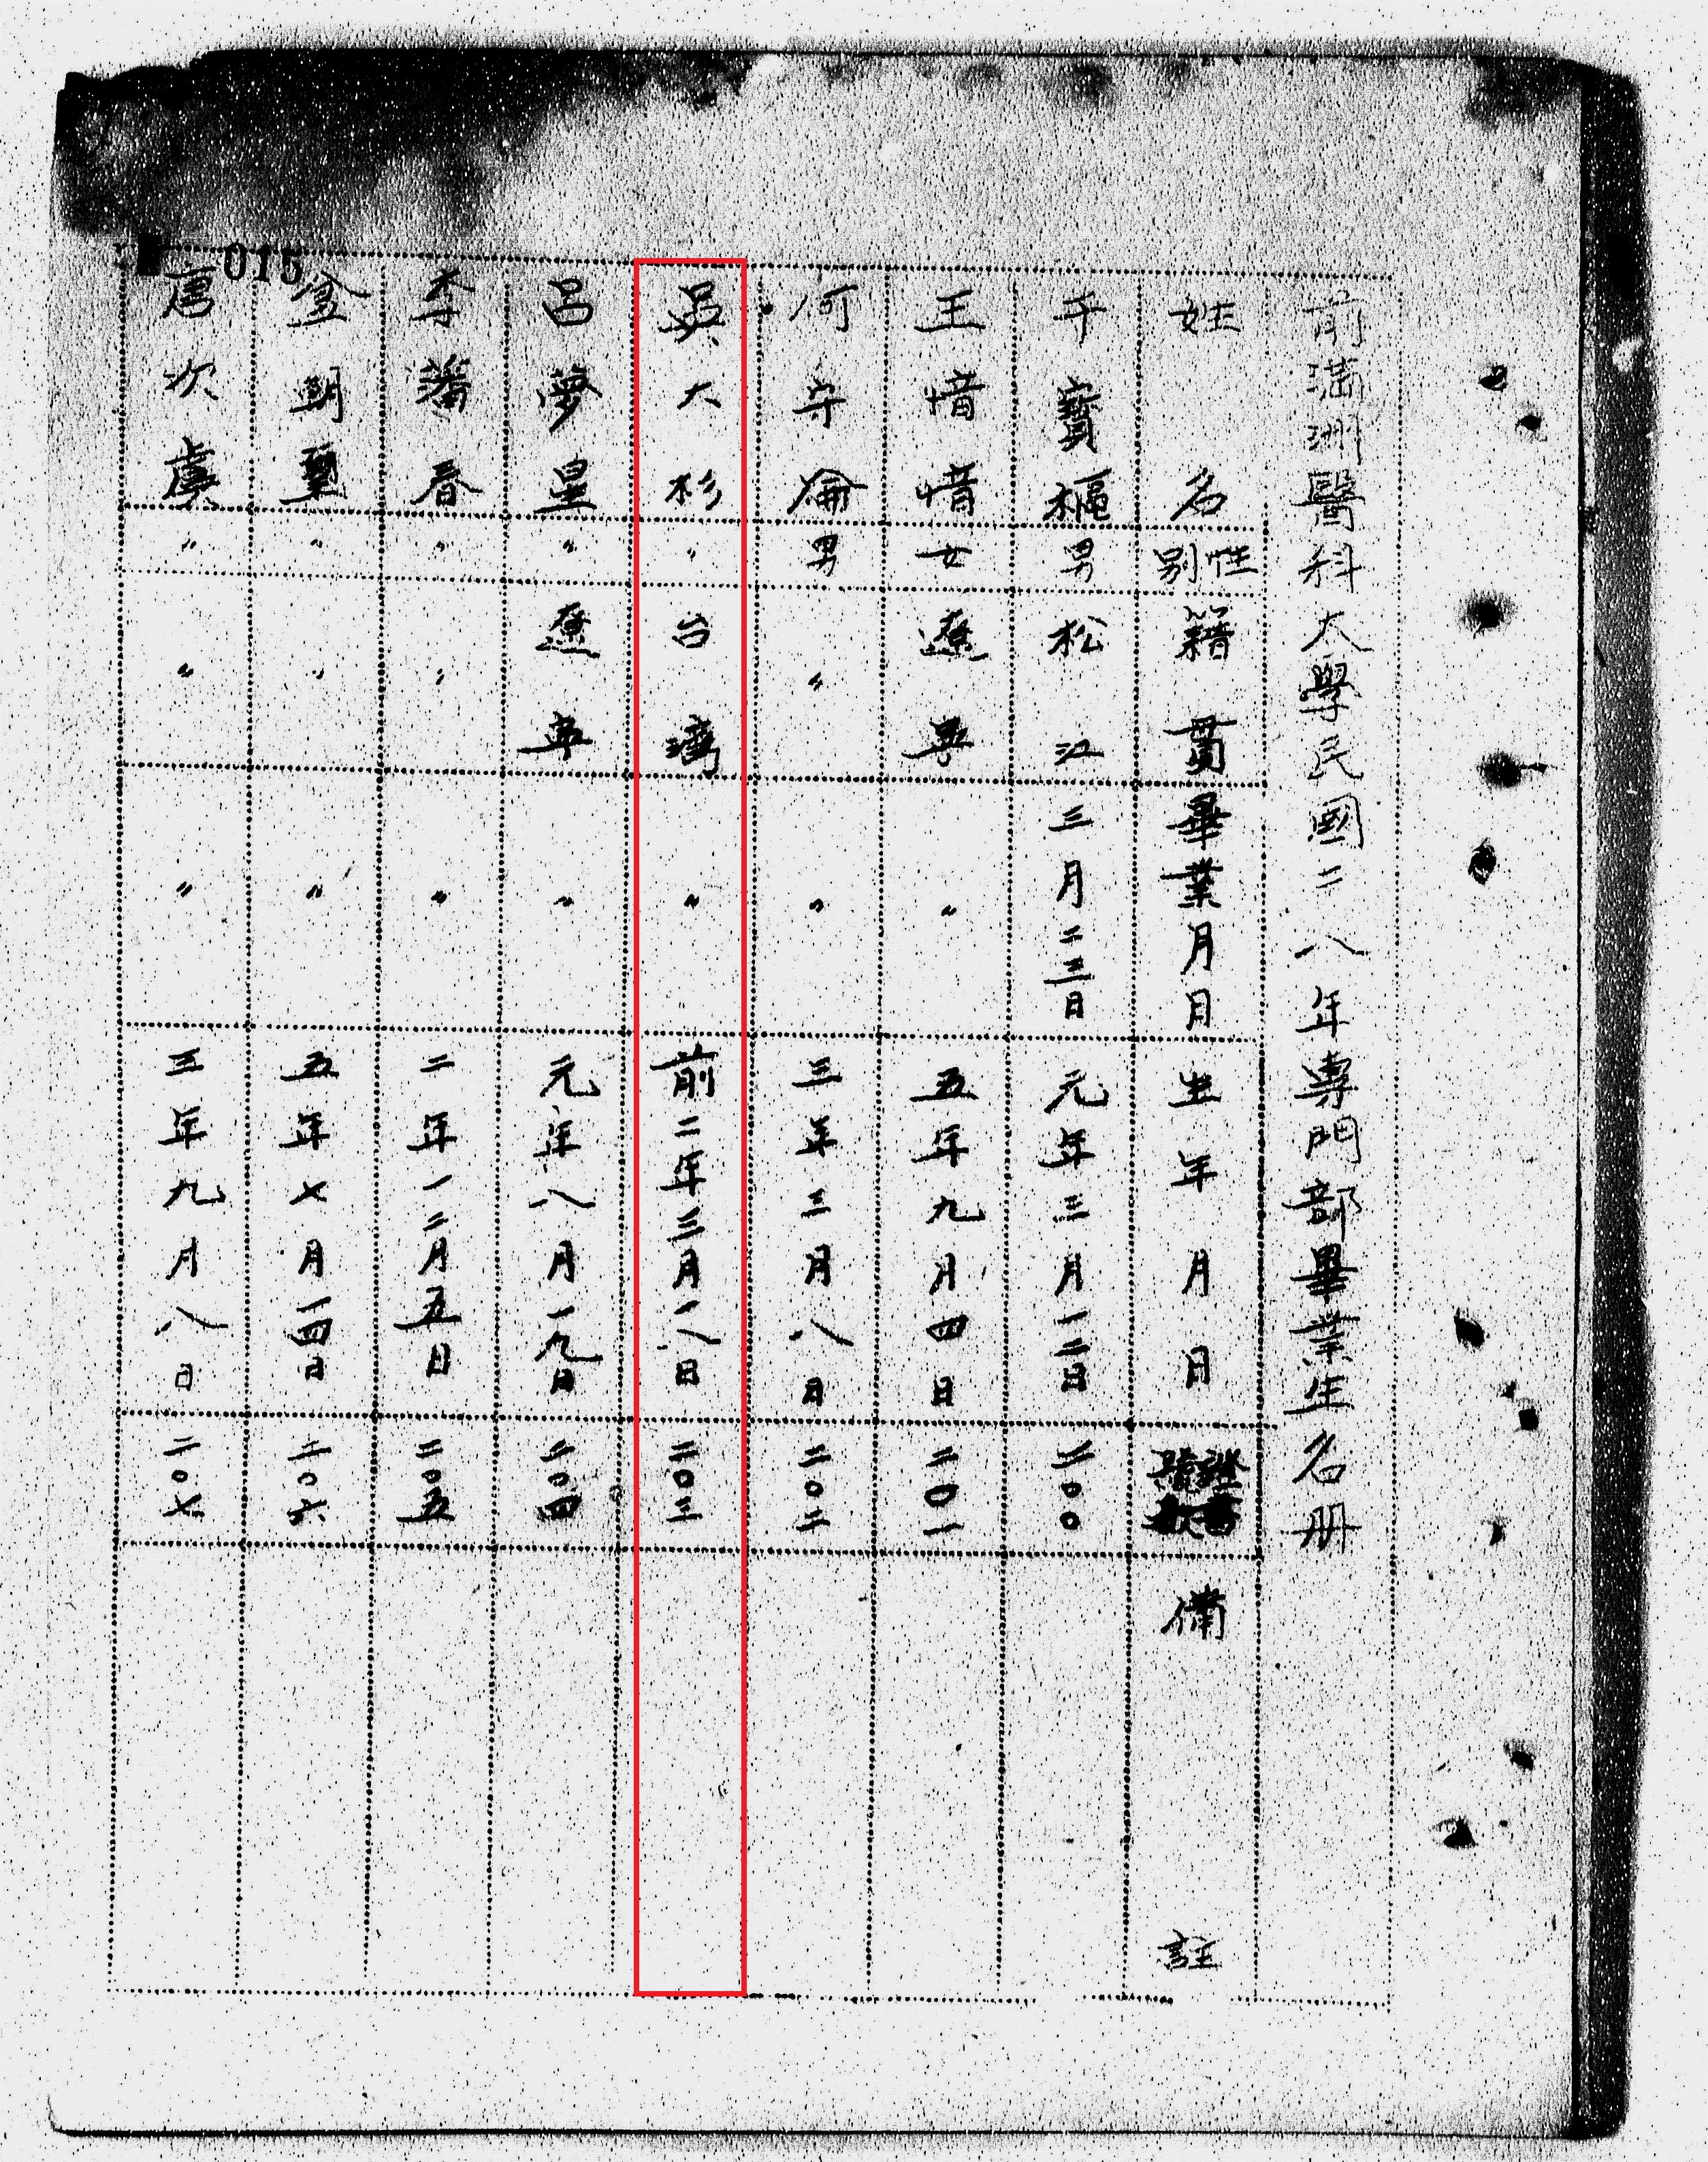 015
前滿洲醫科大學民國二八年專門部畢業生名册
姓名 性別 籍貫 畢業月日 生年月日 證書號數 備註
于寶樞 男 松江 三月二三日 元年三月一二日 二〇〇
王惜惜 女 遼寧 〃 五年九月四日 二〇一
何守侖 男 〃 〃 三年三月八日 二〇二
吳大杉 〃 台灣 〃 前二年三月一八日 二〇三
呂夢星 〃 遼寧 〃 元年八月一九日 二〇四
李藩春 〃 〃 〃 二年一二月五日 二〇五
金朝 〃 〃 〃 五年七月一四日 二〇六
唐次虞 〃 〃 〃 三年九月八日 二〇七